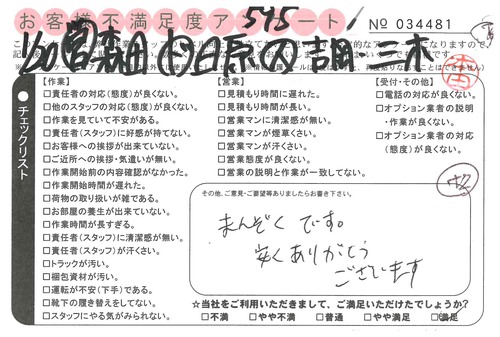 お客様不満足度アンケート
545
No 034481
チェックリスト
【作業】
□責任者の対応(態度)が良くない。
□他のスタッフの対応(態度)が良くない。
□作業を見ていて不安がある。
□責任者(スタッフ)に好感が持てない。
□お客様への挨拶が出来ていない。
□ご近所への挨拶・気遣いが無い。
□作業開始前の内容確認がなかった。
□作業開始時間が遅れた。
□荷物の取り扱いが雑である。
□お部屋の養生が出来ていない。
□作業時間が長すぎる。
□責任者(スタッフ)に清潔感が無い。
□責任者(スタッフ)が汗くさい。
□トラックが汚い。
□梱包資材が汚い。
□運転が不安(下手)である。
□靴下の履き替えをしてない。
□スタッフにやる気がみられない。
【営業】
□見積もり時間に遅れた。
□見積もり時間が長い。
□営業マンに清潔感が無い。
□営業マンが煙草くさい。
□営業マンが汗くさい。
□営業態度が良くない。
□営業の説明と作業が一致してない。
【受付・その他】
□電話の対応が良くない。
□オプション業者の説明
・作業が良くない。
□オプション業者の対応
(態度)が良くない。
その他、ご意見・ご要望等ありましたらお書き下さい。
まんぞくです。
安くありがとう
ございます
☆当社をご利用いただきまして、ご満足いただけたでしょうか?
□不満 □やや不満 □普通 □やや満足 □満足